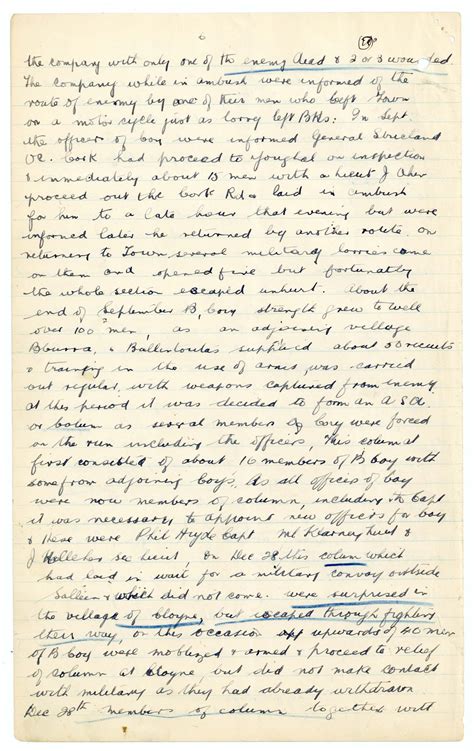 the company with only one of the enemy dead & 2 or 3 wounded.
The company while in ambush were informed of the
route of enemy by one of their men who left Town
on a motor cycle just as lorry left BKs: In Sept.
the officers of Coy were informed General Stricland
OC. Cork had proceed to Youghal on inspection
& immediately about 15 men with a Lieut J Aher
proceed out the Cork Rd & laid in ambush
for him to a late hour that evening but were
informed later he returned by another route, on
returning to Town several military lorries came
on them and opened fire but fortunatly
the whole section escaped unhurt. About the
end of September B. Coy strength grew to well
over 100 men, as an adjoining village
& Ballintoulas supplied about 30 recruits
& training in the use of arms, was carried
out regular, with weapons captured from enemy
at this period it was decided to form an A.S.U.
or Colum as several members of Coy were forced
on the run including the officers, This colum at
first consisted of about 16 members of B Coy with
some from adjoining Coys, As all offices of Coy
were now members of column, including the Capt
it was necessary to appoint new officers for Coy
& these were Phil Hyde Capt Ml Kearney Lieut &
J Kelleher sec Lieut, On Dec 28 this colum which
had laid in wait for a military convoy outside
which did not come. were surprised in
the village of Cloyne, but escaped through fighting
their way, on this occasion upwards of 40 men
of B Coy were moblized & armed & proceed to relief
of column at Cloyne, but did not make contact
with military as they had already withdrawn
Dec 28th members of column together with